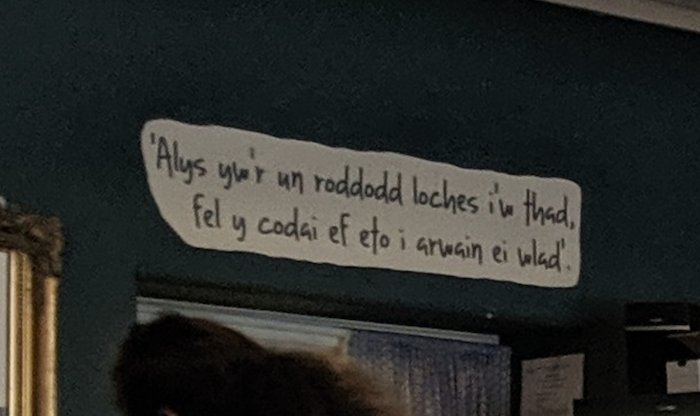 'Alys yw'r un roddodd loches i'w thad,
fel y codai ef eto i arwain ei wlad'.